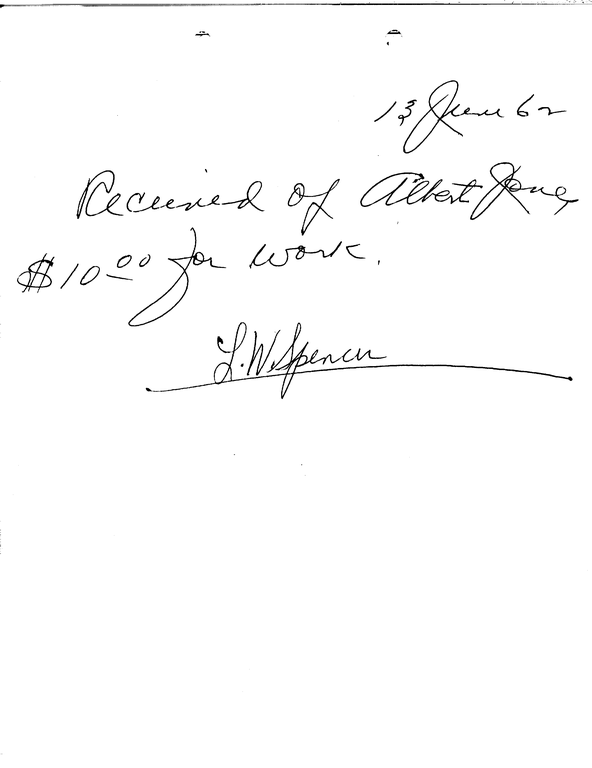 13 June 62
Received of Albert Jones
$10.00 for work.
L.W. Spencer